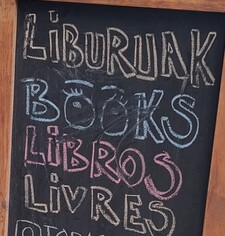 LIBURUAK
BOOKS
LIBROS
LIVRES